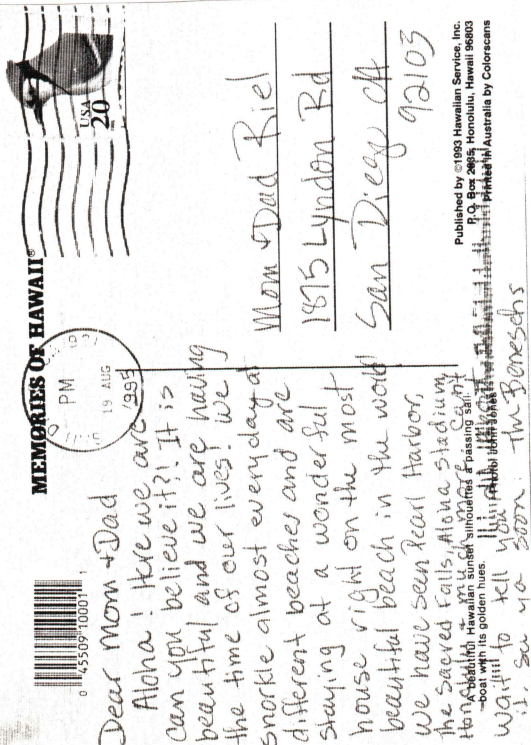 MEMORIES OF HAWAII®
0 45509 10001 1
PM
19 AUG
1995
USA
20
Dear Mom & Dad
Aloha! Here we are
can you believe it?! It is
beautiful and we are having
the time of our lives we
snorkle almost everyday at
different beaches and are
staying at a wonderful
house right on the most
beautiful beach in the world
We have seen Pearl Harbor,
the Sacred Falls, Aloha Stadium,
& much more Can't
wait to tell you
see ya soon. Th Beneschs
Mom & Dad Riel
1875 Lyndon Rd
San Diego CA
92103
A beautiful Hawaiian sunset silhouettes a passing sail-
boat with its golden hues.
Photo: John Jones
Published by ©1993 Hawaiian Service, Inc.
P.O. Box 2835, Honolulu, Hawaii 96803
Printed in Australia by Colorscans